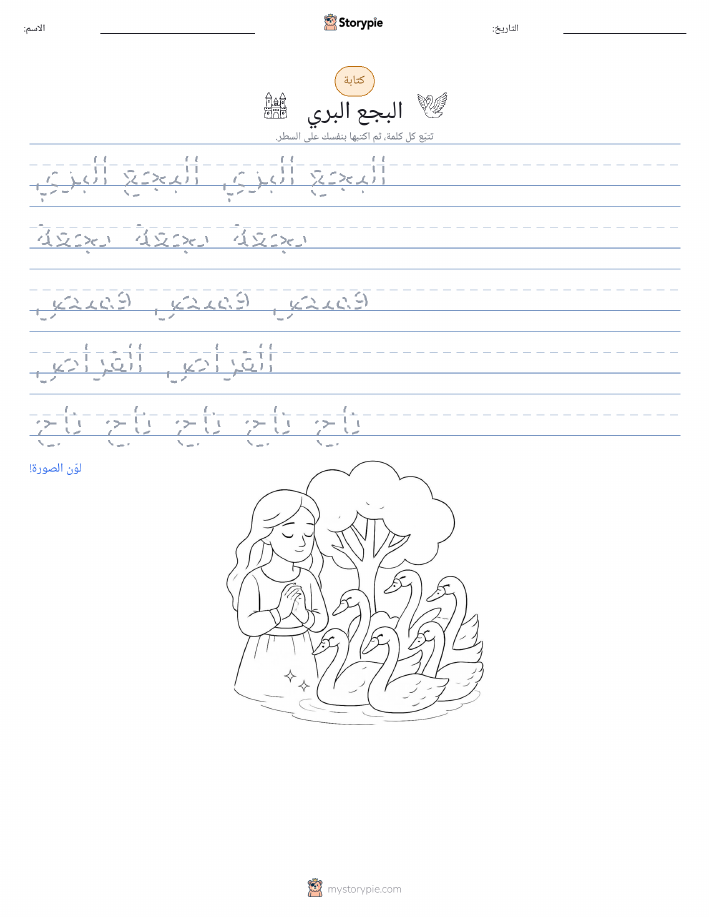 الاسم:
Storypie
التاريخ:
كتابة
البجع البري
تتبّع كل كلمة، ثم اكتبها بنفسك على السطر.
البجع البري البجع البري
بجعة بجعة بجعة
قميص قميص قميص
القراص القراص
تاج تاج تاج تاج تاج
لوّن الصورة!
mystorypie.com